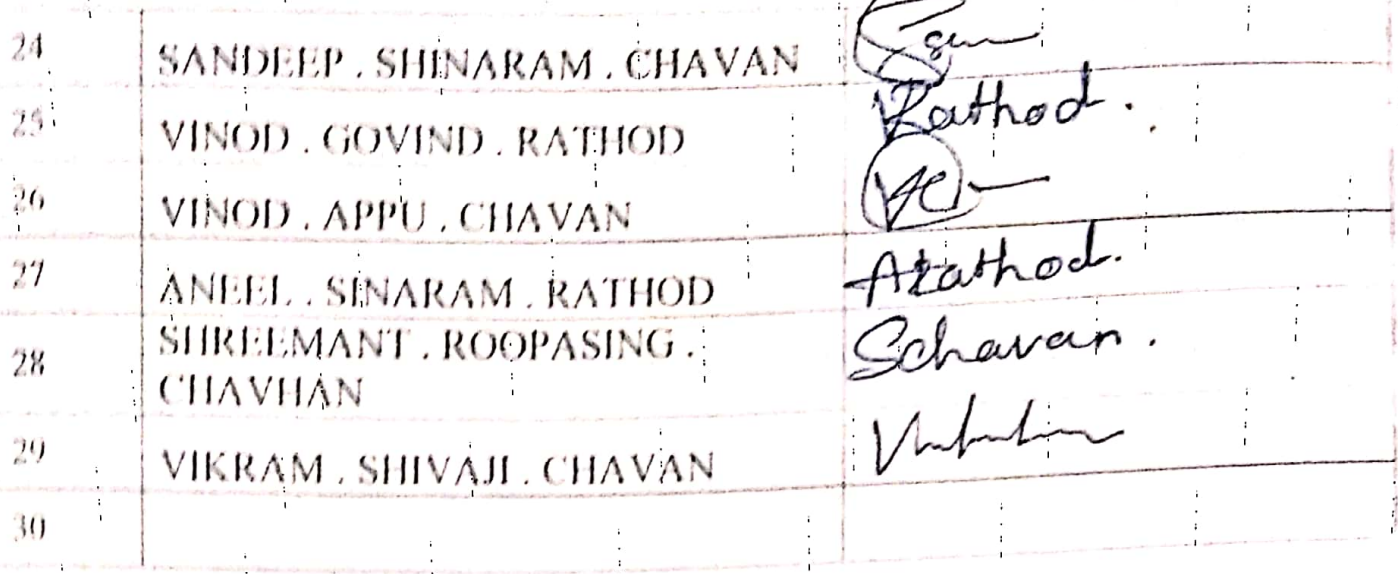 24 SANDEEP . SHINARAM . CHAVAN
25 VINOD . GOVIND . RATHOD Rathod .
26 VINOD . APPU . CHAVAN
27 ANEEL . SINARAM . RATHOD ARathod.
28 SHREEMANT . ROOPASING . Schavan .
CHAVHAN
29 VIKRAM . SHIVAJI . CHAVAN
30